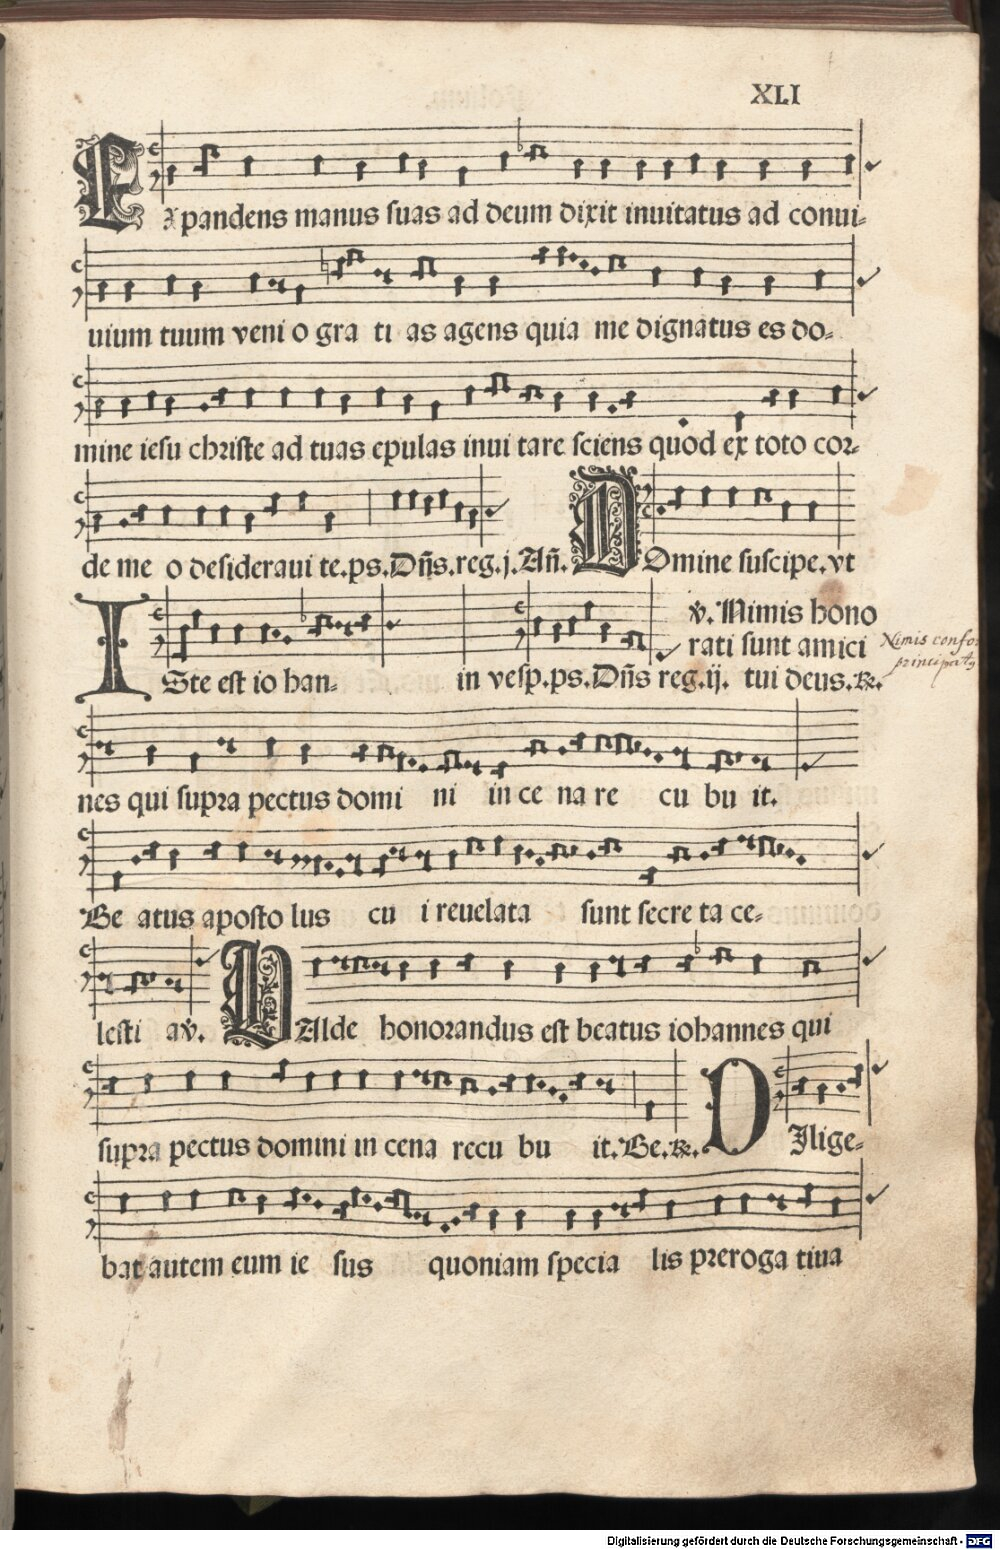 XLI
Expandens manus suas ad deum dixit inuitatus ad conui-
uium tuum veni o gra ti as agens quia me dignatus es do-
mine iesu christe ad tuas epulas inui tare sciens quod ex toto cor-
de me o desideraui te.ps.Dñs.reg.j.Añ. DOmine suscipe.vt
v̄. Nimis hono
rati sunt amici
ISte est io han- in vesp.ps.Dñs reg.ij. tui deus.℞.
Nimis confor
principat9
nes qui supra pectus domi ni in ce na re cu bu it.
Be atus aposto lus cu i reuelata sunt secre ta ce-
lesti av̄. VAlde honorandus est beatus iohannes qui
supra pectus domini in cena recu bu it.Be.℞. DIlige-
bat autem eum ie sus quoniam specia lis preroga tiua
Digitalisierung gefördert durch die Deutsche Forschungsgemeinschaft - DFG